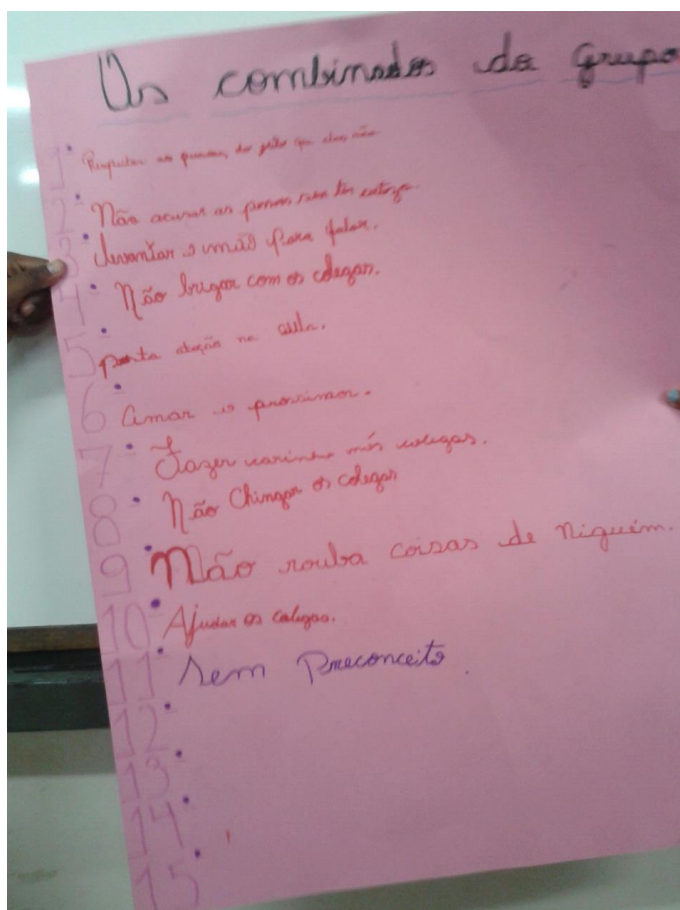 Os combinados do Grupo
1 Respeitar as pessoas, do jeito que elas são
2 Não acusar as pessoas sem ter certeza.
3 Levantar a mão para falar.
4 Não brigar com os colegas.
5 na aula.
6 Amar o
7 Fazer carinho nós colegas.
8 Não Chingar os colegas
9 Não rouba coisas de Niguém.
10 Ajudar os colegas.
11 Sem Preconceito.
12
13
14
15